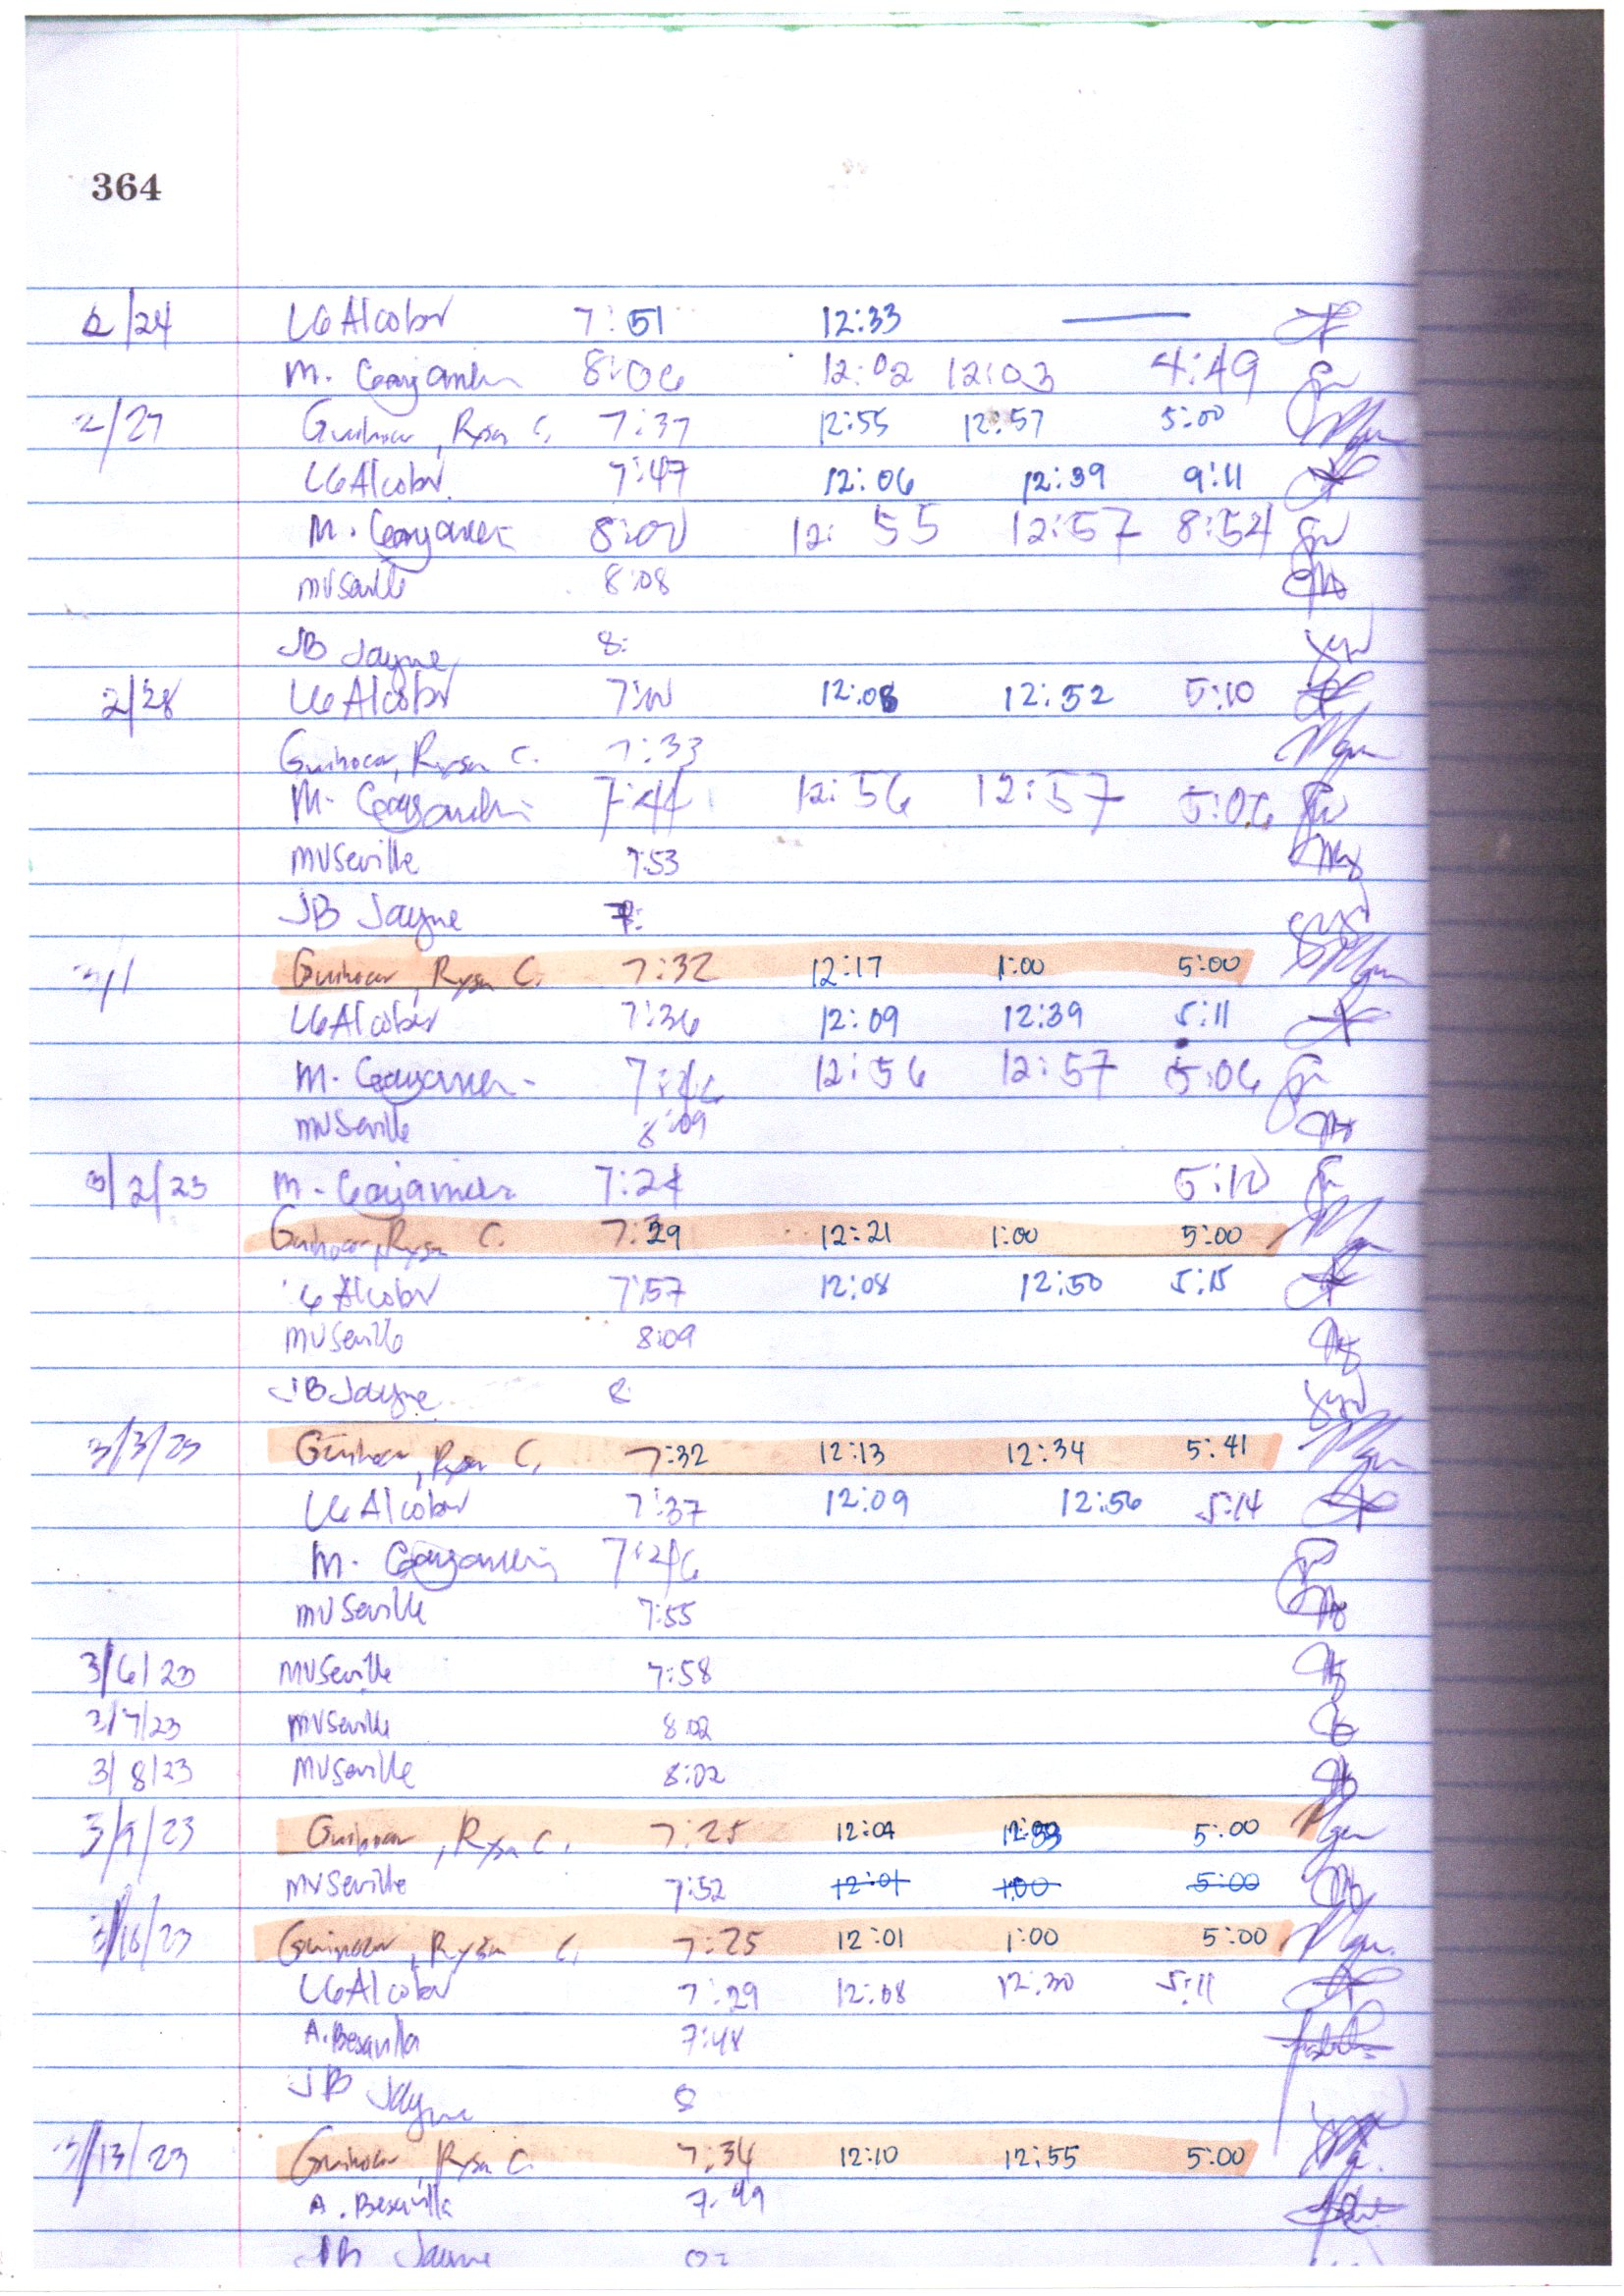 364
2/24 LG Alcober 7:51 12:33 —
M. 8:06 12:02 12:03 4:49
2/27 Guihocor, Rysa C. 7:37 12:55 12:57 5:00
LG Alcober 7:47 12:06 12:39 9:11
M. 12:55 12:57 8:54
MVSeville 8:08
JB Jayne 8:
2/28 LG Alcober 12:08 12:52 5:10
Guihocor, Rysa C. 7:33
M. 7:44 12:56 12:57 5:06
MVSeville 7:53
JB Jayne
3/1 Guihocor, Rysa C. 7:32 12:17 1:00 5:00
LG Alcober 7:36 12:09 12:39 5:11
M. 12:56 12:57 5:06
MVSeville 8:09
3/2/23 M. 7:24 5:10
Guihocor, Rysa C. 7:29 12:21 1:00 5:00
LG Alcober 7:57 12:08 12:50 5:15
MVSeville 8:09
JB Jayne 8:
3/3/23 Guihocor, Rysa C. 7:32 12:13 12:34 5:41
LG Alcober 7:37 12:09 12:56 5:14
M. 7:46
MVSeville 7:55
3/6/23 MVSeville 7:58
3/7/23 MVSeville 8:02
3/8/23 MVSeville 8:02
3/9/23 Guihocor, Rysa C. 7:25 12:04 5:00
MVSeville 7:52 12:01 1:00 5:00
3/10/23 Guihocor, Rysa C. 7:25 12:01 1:00 5:00
LG Alcober 7:29 12:08 12:30 5:11
A. Besavilla 7:48
JB Jayne 8
3/13/23 Guihocor, Rysa C. 7:34 12:10 12:55 5:00
A. Besavilla 7:49
JB Jayne